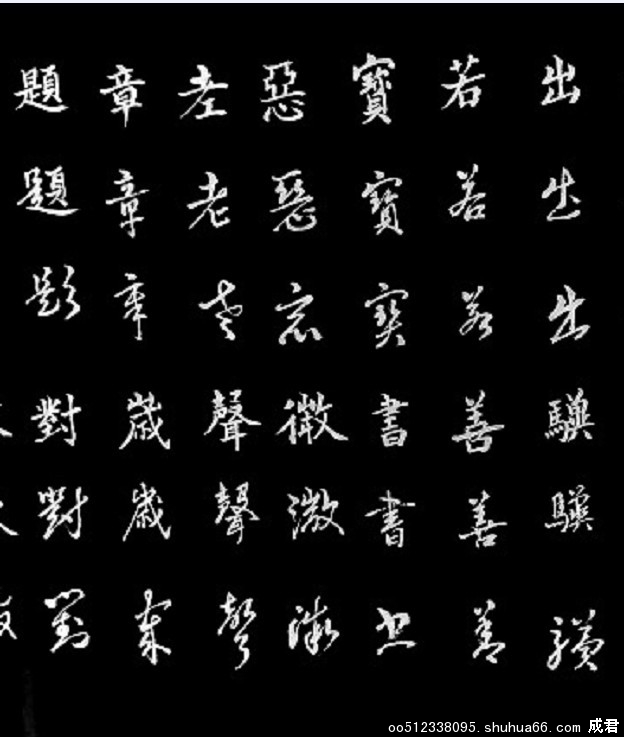 出出出
若若若善善善
寶寶寶書書書
惡惡惡微微微
老老老聲聲聲
章章章歲歲歲
題題題對對對
oo512338095.shuhua66.com 成君